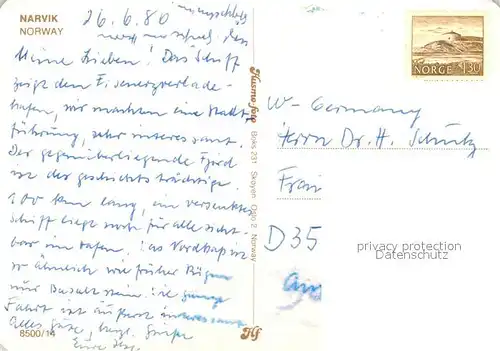 NARVIK
NORWAY
26.6.80
Meine Lieben! Das Schiff
zeigt den Eisenerzverlade-
hafen, wir machten eine Stadt-
führung, sehr interessant.
Der gegenüberliegende Fjord
ist der geschichtsträchtige.
100 km lang, ein versenktes
Schiff liegt noch für alle sicht-
bar im Hafen. Das Nordkap ist
so ähnlich wie früher Rügen
nur Basaltstein. Die ganze
Fahrt ist äußerst interessant
Alles Gute, herzl. Grüße
Eure
8500/14
Husmo foto
Boks 231 Skøyen Oslo 2 Norway
Hf
NORGE 130
W-Germany
Herrn Dr. H. Schütz
D35
privacy protection
Datenschutz